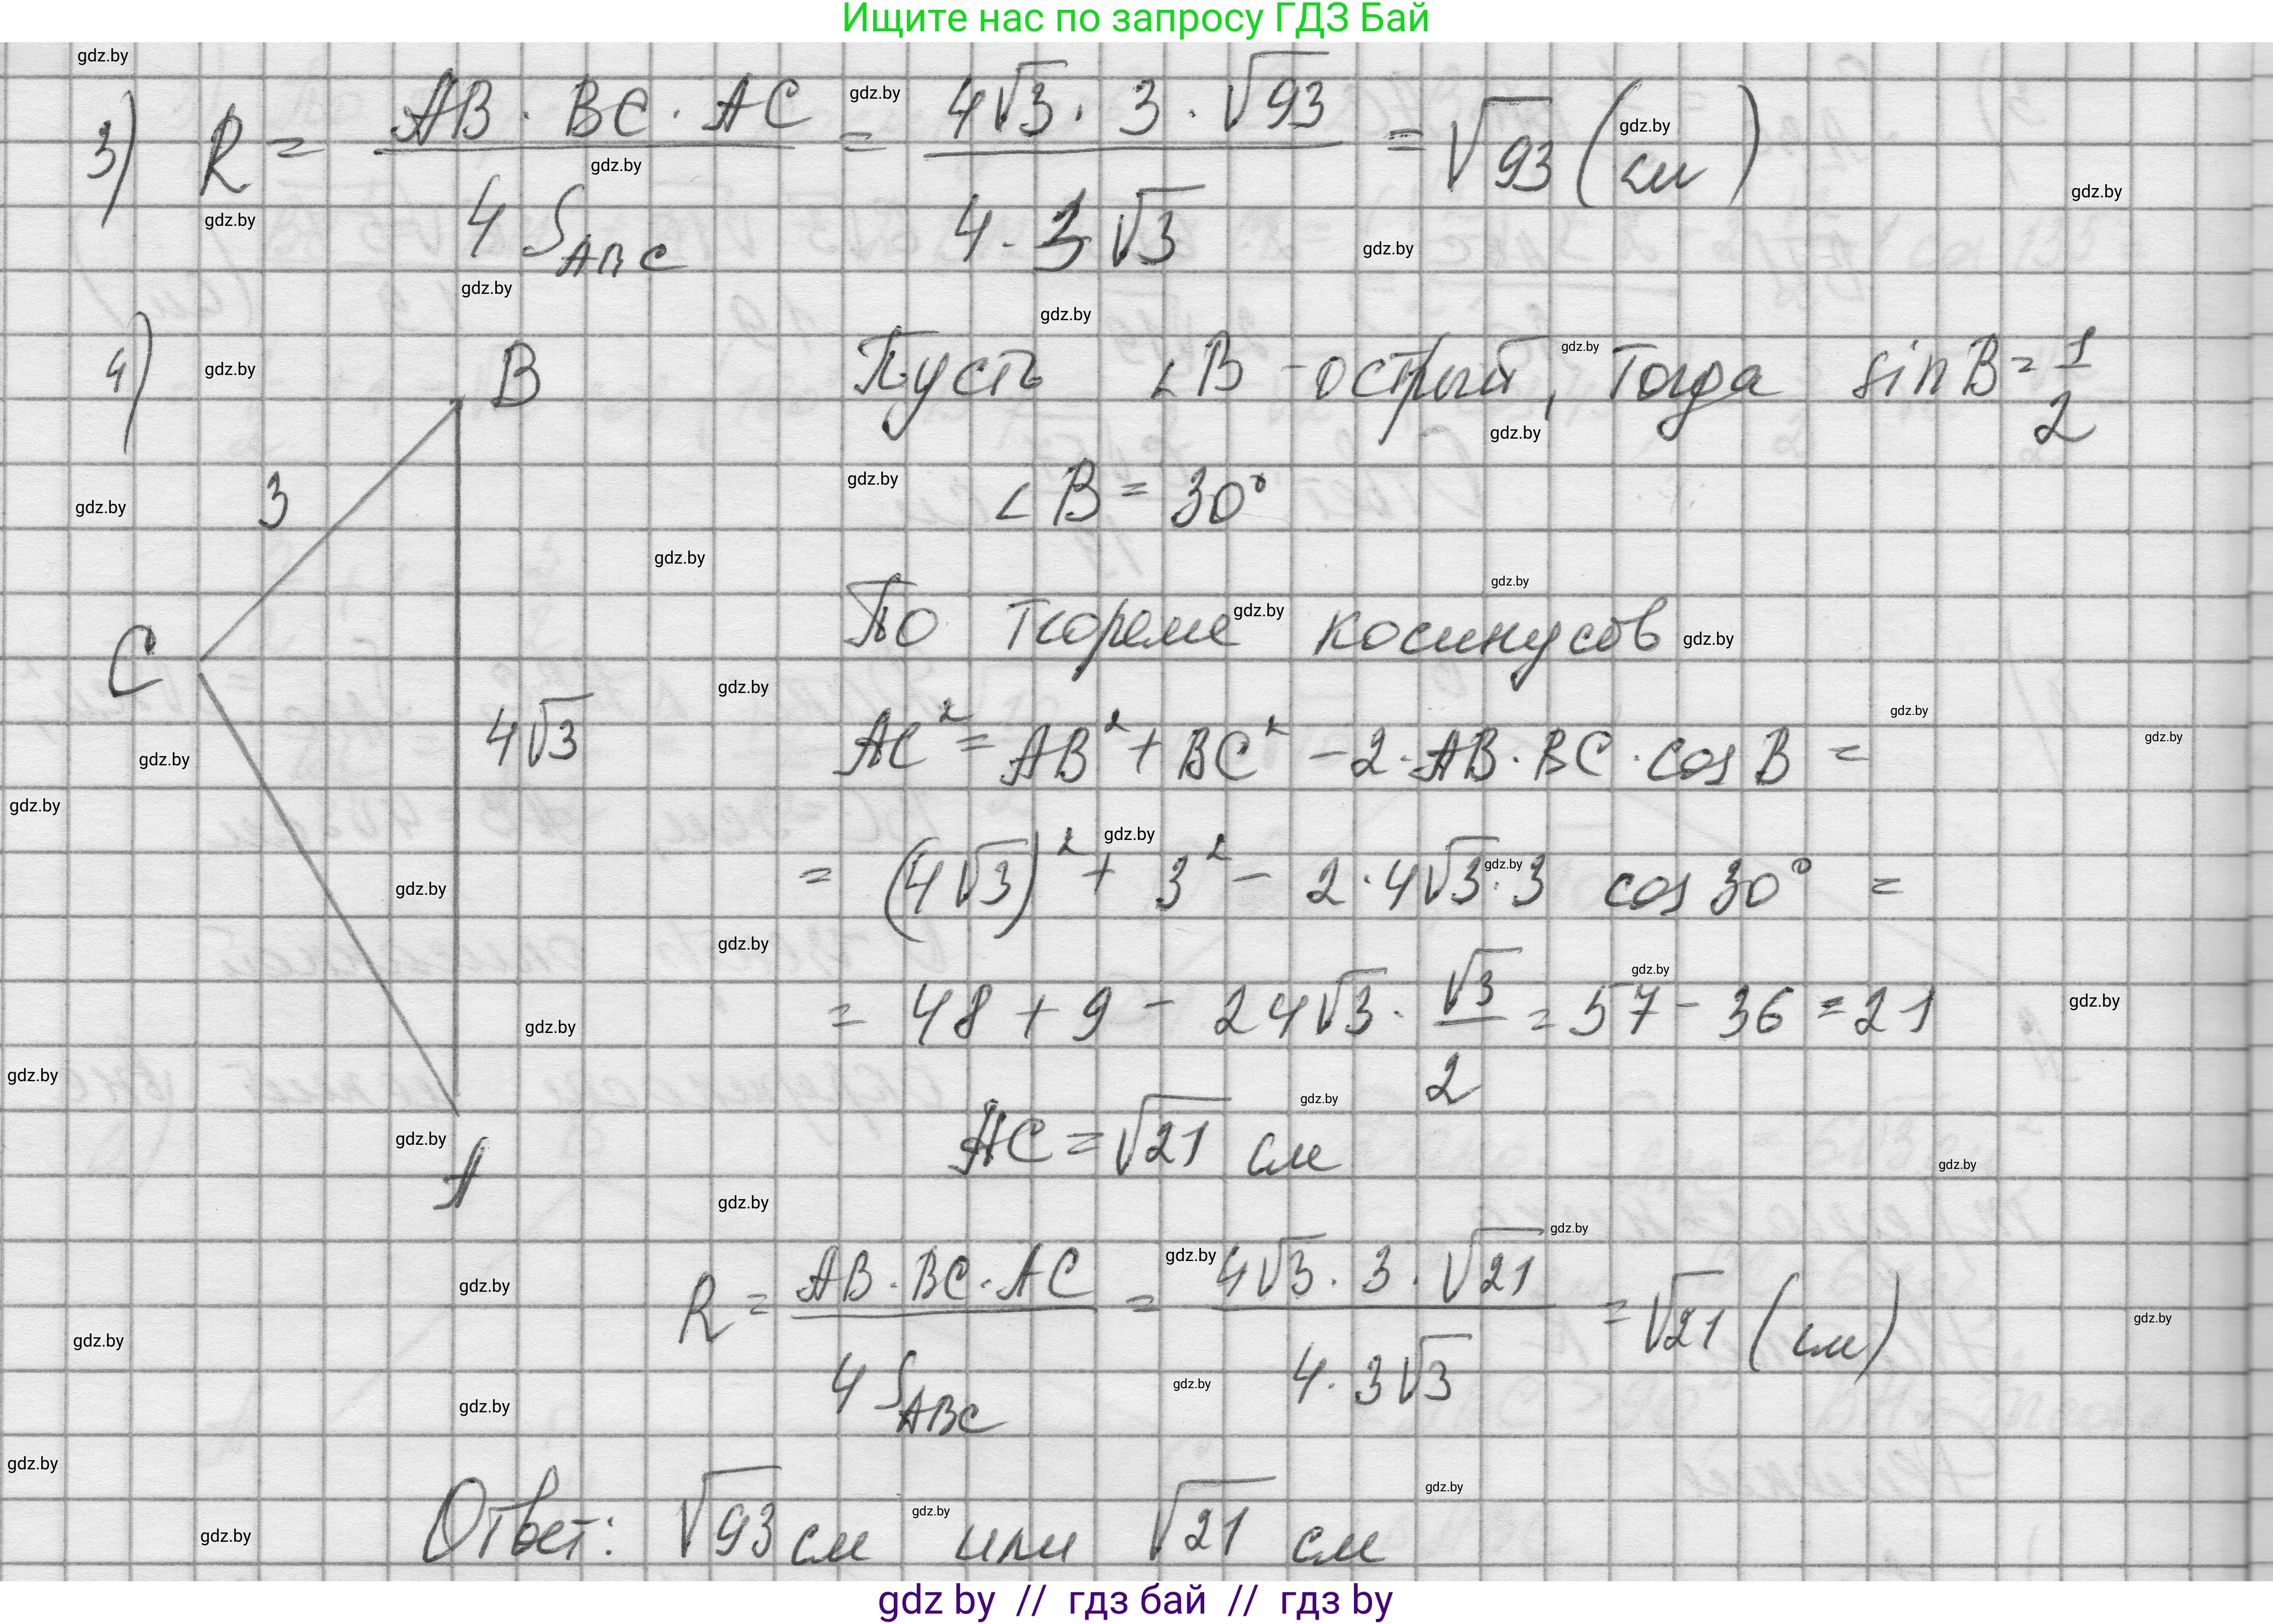 Ищите нас по запросу ГДЗ Бай
3) R = AB · BC · AC / 4 S_ABC = 4√3 · 3 · √93 / 4 · 3√3 = √93 (см)
4) B
Пусть ∠B - острый, тогда sin B = 1/2
3
∠B = 30°
По теореме косинусов
C
4√3
AC² = AB² + BC² - 2 · AB · BC · cos B =
= (4√3)² + 3² - 2 · 4√3 · 3 cos 30° =
= 48 + 9 - 24√3 · √3/2 = 57 - 36 = 21
AC = √21 см
A
R = AB · BC · AC / 4 S_ABC = 4√3 · 3 · √21 / 4 · 3√3 = √21 (см)
Ответ: √93 см или √21 см
gdz by // гдз бай // гдз by